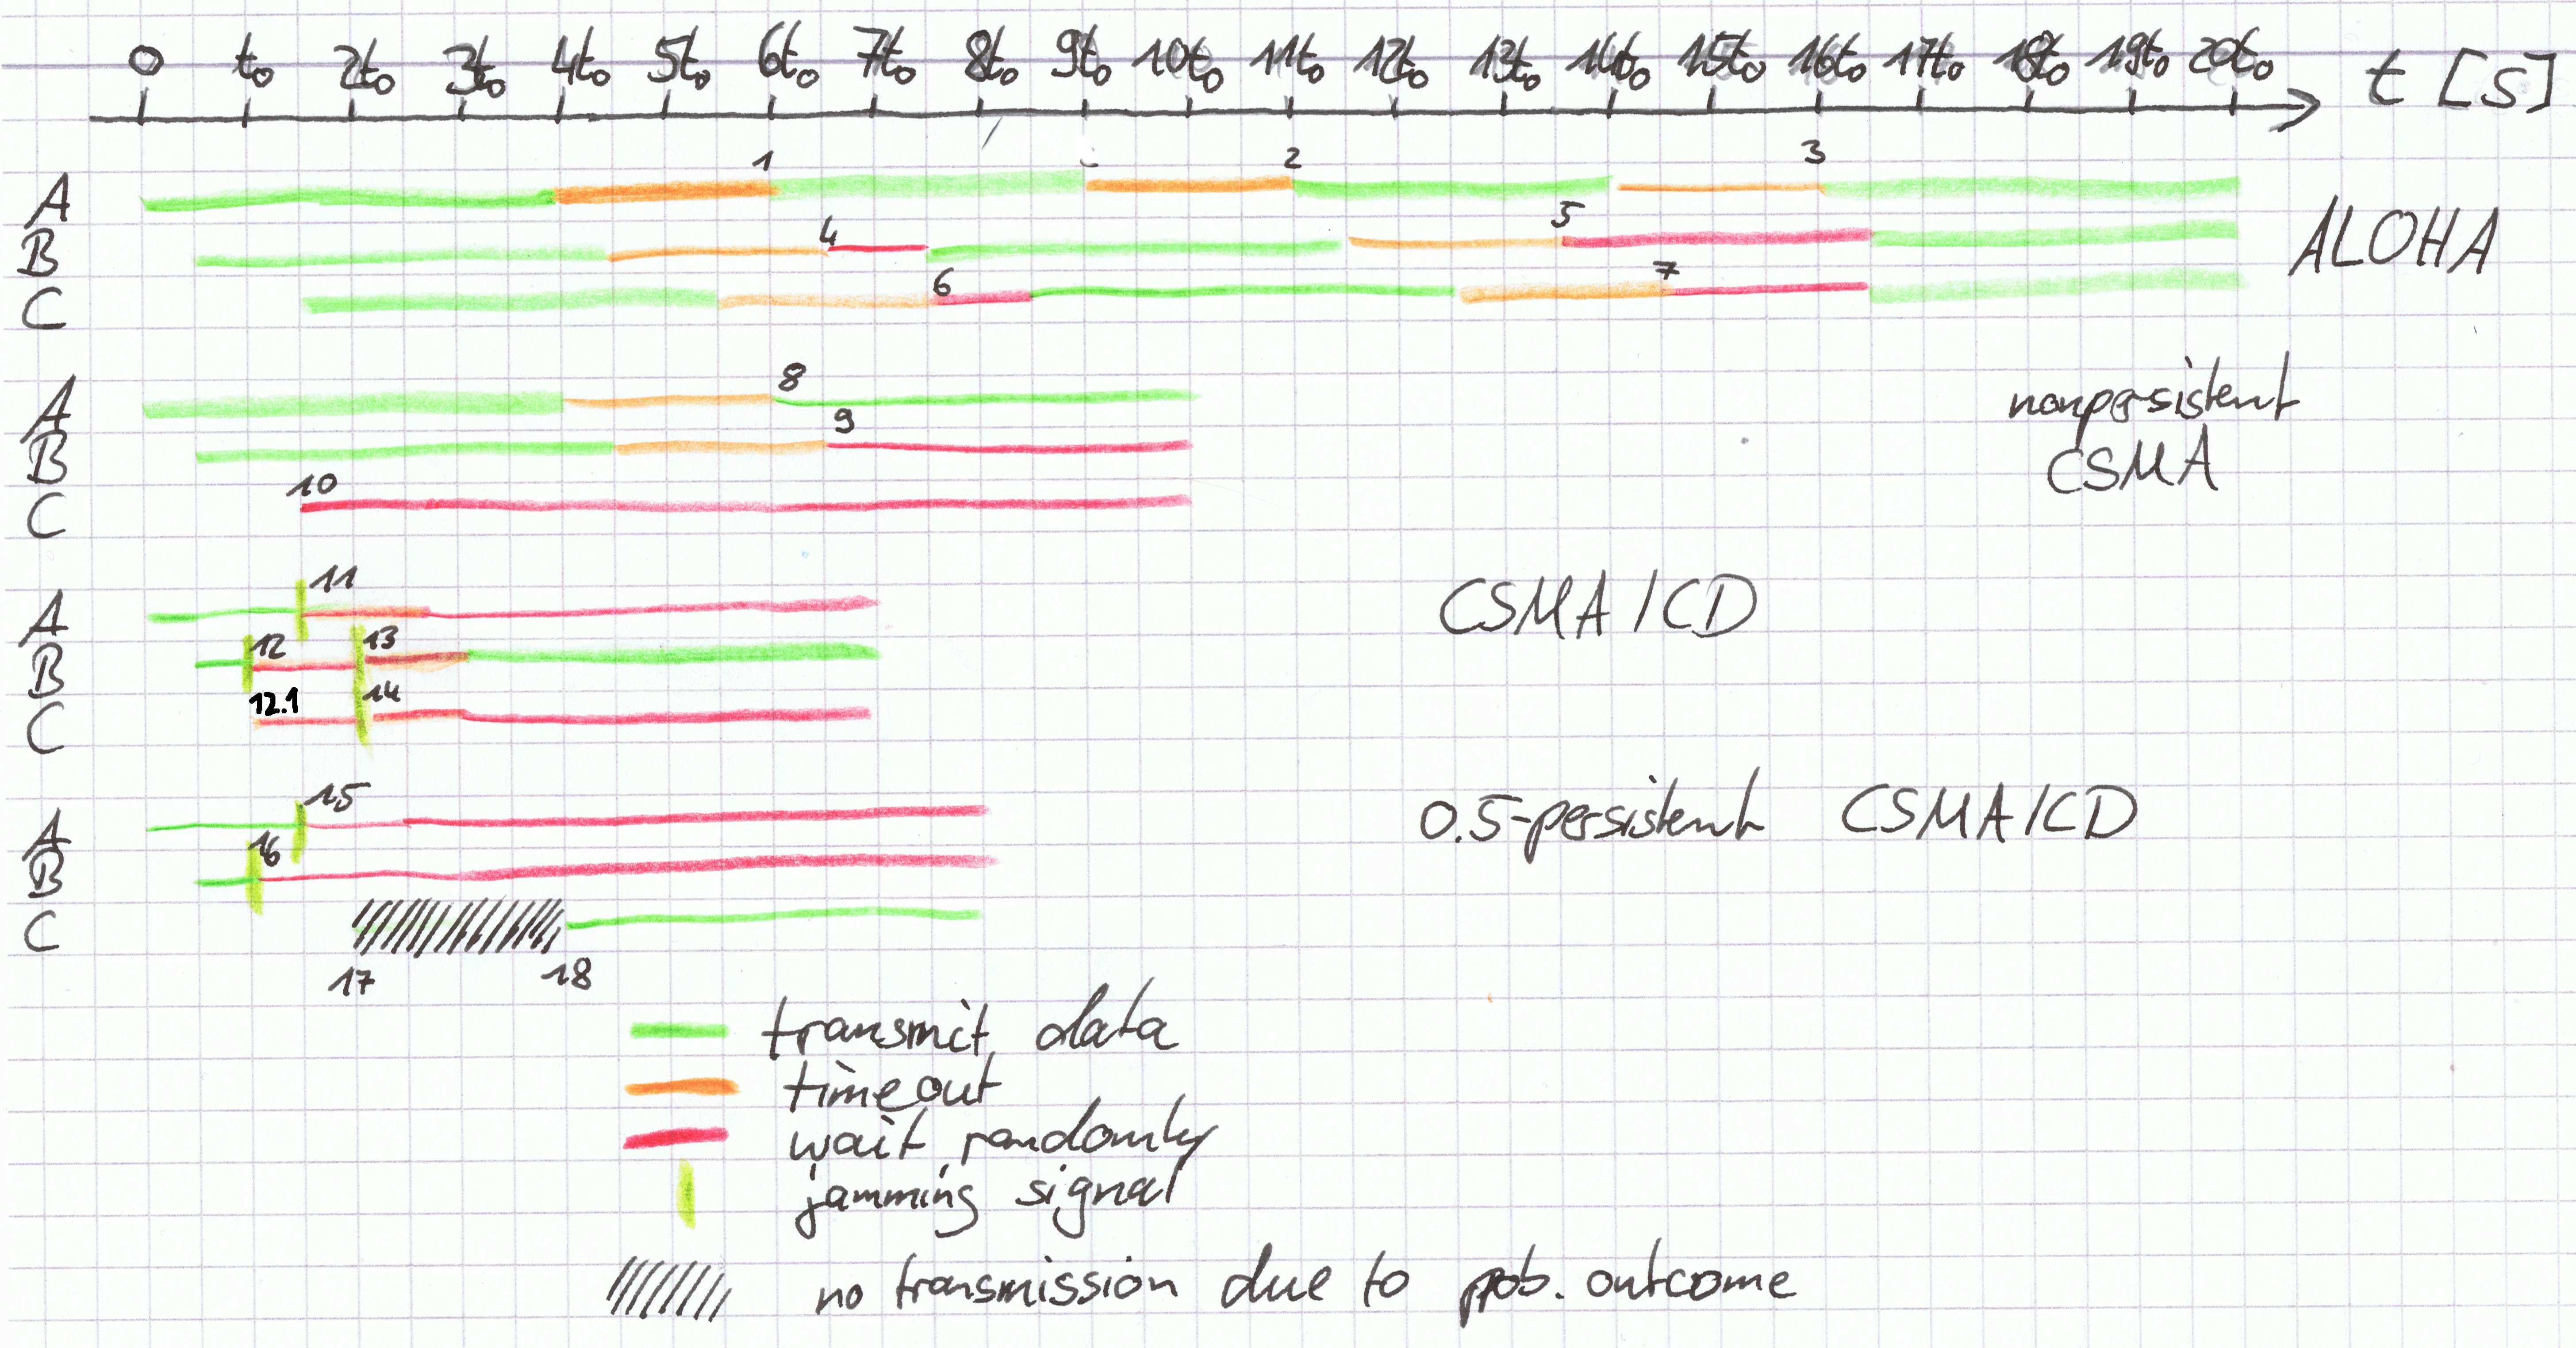 0 t₀ 2t₀ 3t₀ 4t₀ 5t₀ 6t₀ 7t₀ 8t₀ 9t₀ 10t₀ 11t₀ 12t₀ 13t₀ 14t₀ 15t₀ 16t₀ 17t₀ 18t₀ 19t₀ 20t₀ t [s]
1 2 3
A
4 5
B ALOHA
6 7
C
8
A nonpersistent
9
B CSMA
10
C
11
A CSMA/CD
12 13
B
12.1 14
C
15
A 0.5-persistent CSMA/CD
16
B
C
17 18
transmit data
timeout
wait randomly
jamming signal
no transmission due to prob. outcome